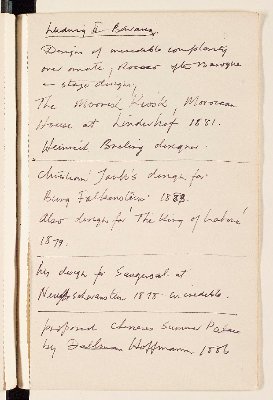 Ludwig II Bavaria
Designs of incredible complexity
over ornate, Rococo after Baroque
in stage design,
The Moorish Kiosk, Moroccan
House at Linderhof 1881.
Heinrich Breling designer.
Christian Jank's design for
Burg Falkenstein 1883
Also design for 'The King of Lahore'
1879.
his design for Saengersaal at
Neuschwanstein 1878 incredible.
proposed Chinese Summer Palace
by Hoffmann 1886